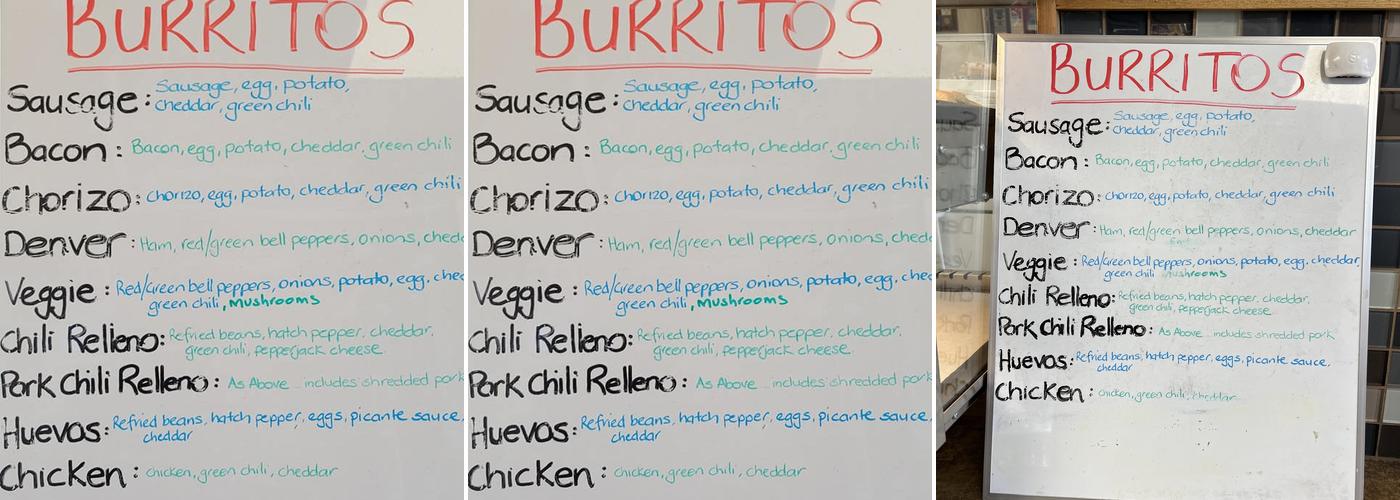 BURRITOS
Sausage: Sausage, egg, potato,
cheddar, green chili
Bacon: Bacon, egg, potato, cheddar, green chili
Chorizo: chorizo, egg, potato, cheddar, green chili
Denver: Ham, red/green bell peppers, onions, chedd
Veggie: Red/Green bell peppers, onions, potato, egg, ched
green chili, Mushrooms
Chili Relleno: Refried beans, hatch pepper, cheddar,
green chili, pepperjack cheese
Pork Chili Relleno: As Above includes shredded pork
Huevos: Refried beans, hatch pepper, eggs, picante sauce,
cheddar
Chicken: chicken, green chili, cheddar
BURRITOS
Sausage: Sausage, egg, potato,
cheddar, green chili
Bacon: Bacon, egg, potato, cheddar, green chili
Chorizo: chorizo, egg, potato, cheddar, green chili
Denver: Ham, red/green bell peppers, onions, chedd
Veggie: Red/Green bell peppers, onions, potato, egg, ched
green chili, Mushrooms
Chili Relleno: Refried beans, hatch pepper, cheddar,
green chili, pepperjack cheese
Pork Chili Relleno: As Above includes shredded pork
Huevos: Refried beans, hatch pepper, eggs, picante sauce,
cheddar
Chicken: chicken, green chili, cheddar
BURRITOS
Sausage: Sausage, egg, potato,
cheddar, green chili
Bacon: Bacon, egg, potato, cheddar, green chili
Chorizo: chorizo, egg, potato, cheddar, green chili
Denver: Ham, red/green bell peppers, onions, cheddar
Veggie: Red/Green bell peppers, onions, potato, egg, cheddar,
green chili mushrooms
Chili Relleno: Refried beans, hatch pepper, cheddar,
green chili, pepperjack cheese
Pork Chili Relleno: As Above includes shredded pork
Huevos: Refried beans, hatch pepper, eggs, picante sauce,
cheddar
Chicken: chicken, green chili, cheddar